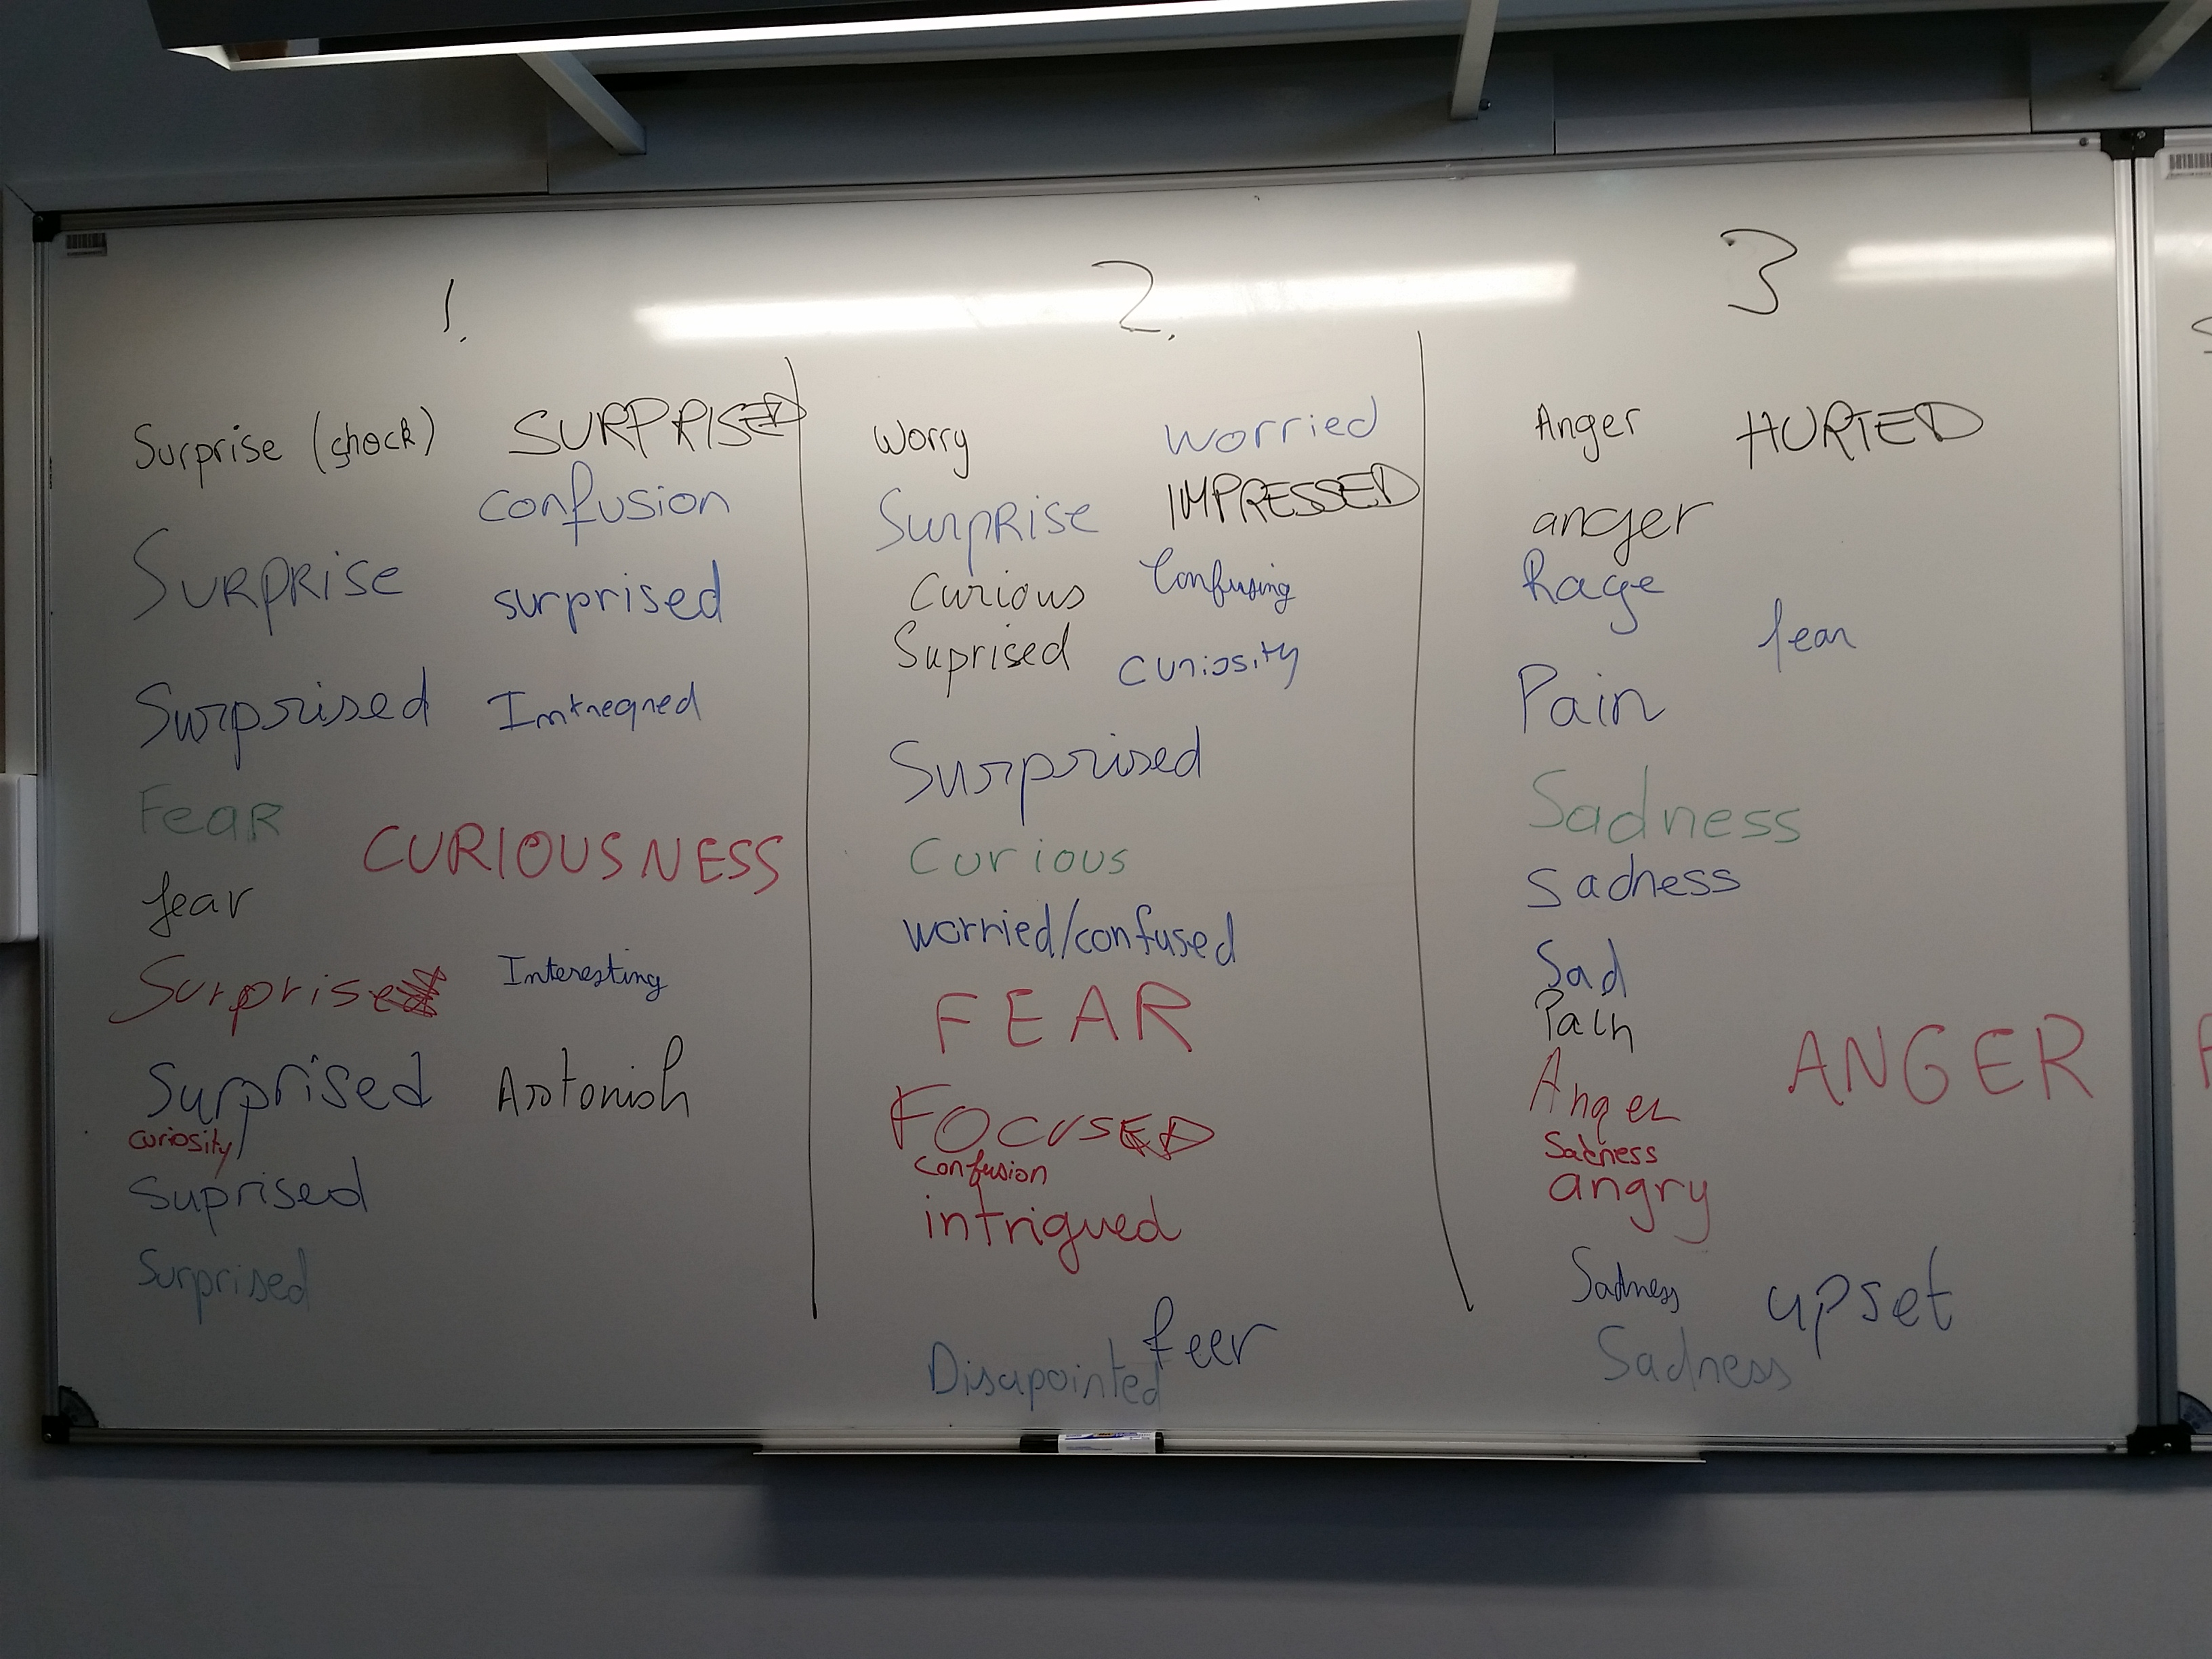 1.
Surprise (shock) SURPRISED
confusion
SURPRISE
surprised
Surprised Intreqned
FeaR
CURIOUSNESS
fear
Surprise
Interesting
Surprised Astonish
curiosity
Suprised
Surprised
2.
Worry worried
SurpRise IMPRESSED
Curious Confusing
Suprised curiosity
Surprised
Curious
worried/confused
FEAR
FOCUSED
confusion
intrigued
feer
Disapointed
3
Anger HURTED
anger
Rage
fear
Pain
Sadness
Sadness
Sad
Pain
ANGER
Anger
Sadness
angry
Sadness upset
Sadness